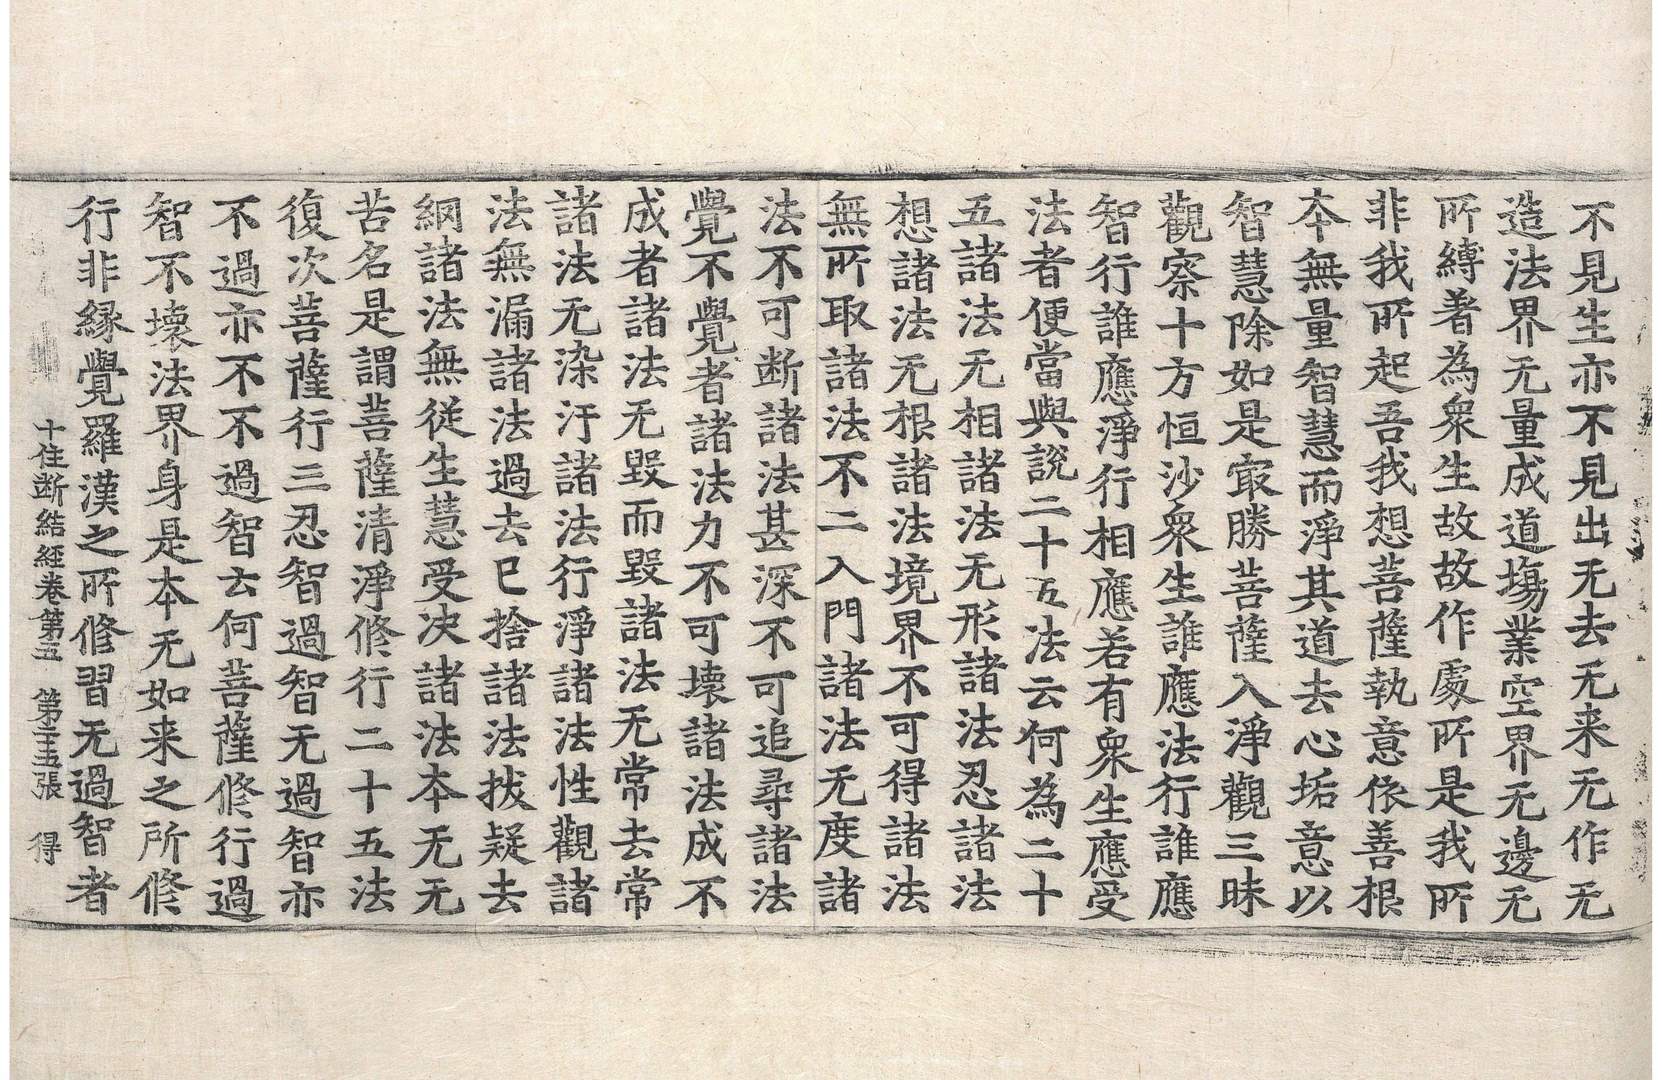 不見生亦不見出无去无来无作无
造法界无量成道塲業空界无邊无
所縛著為衆生故故作處所是我所
非我所起吾我想菩薩執意依善根
本無量智慧而淨其道去心垢意以
智慧除如是㝡勝菩薩入淨觀三昧
觀察十方恒沙衆生誰應法行誰應
智行誰應淨行相應若有衆生應受
法者便當與說二十五法云何為二十
五諸法无相諸法无形諸法忍諸法
想諸法无根諸法境界不可得諸法
無所取諸法不二入門諸法无度諸
法不可断諸法甚深不可追尋諸法
覺不覺者諸法力不可壞諸法成不
成者諸法无毀而毀諸法无常去常
諸法无染汙諸法行淨諸法性觀諸
法無漏諸法過去已捨諸法拔疑去
網諸法無從生慧受決諸法本无无
苦名是謂菩薩清淨修行二十五法
復次菩薩行三忍智過智无過智亦
不過亦不不過智云何菩薩修行過
智不壞法界身是本无如来之所修
行非緣覺羅漢之所修習无過智者
十住断結經卷第五 第二十五張 得